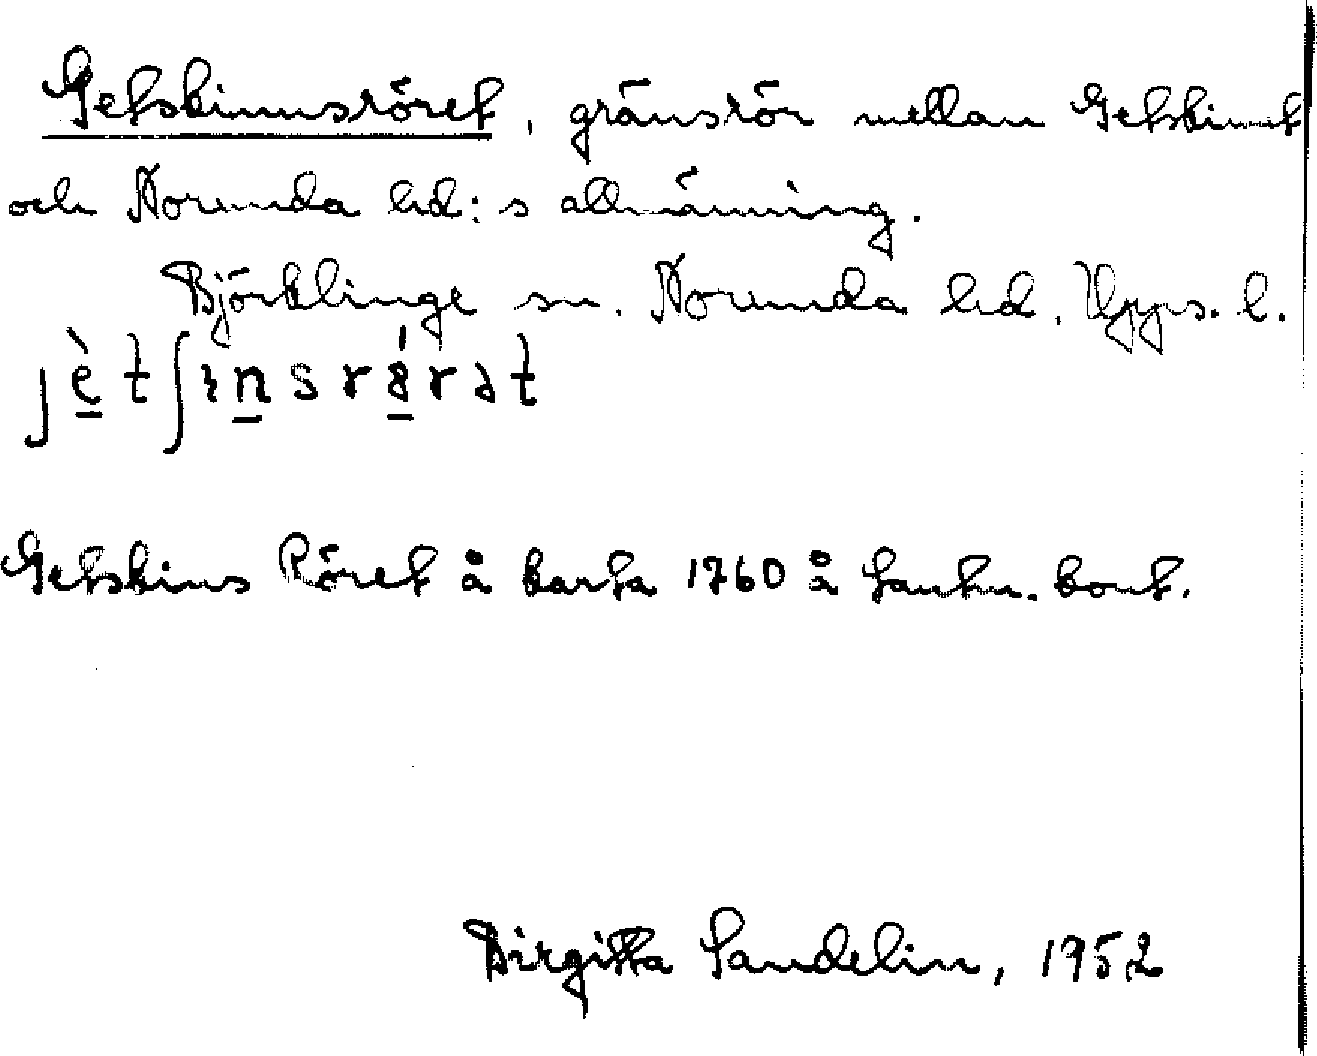 Getskinnsröret, gränsrör mellan Getskinnet
och Norunda hd:s allmänning.
Björklinge sn. Norunda hd. Upps. l.
Getskins Röret å karta 1760 å Lantm. kont.
Birgitta Sandelin, 1952